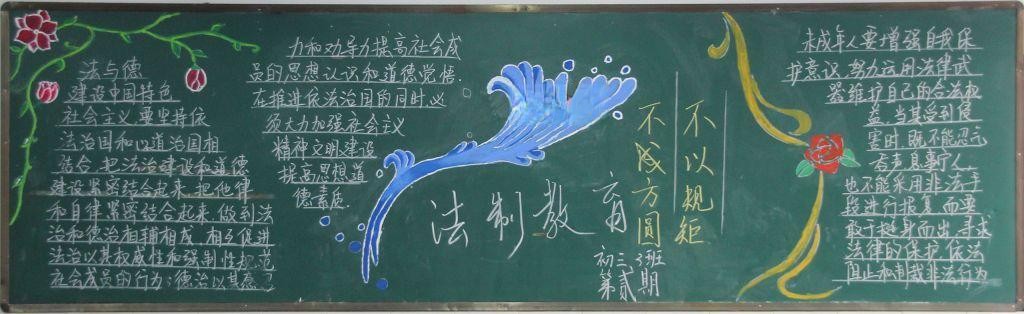 法与德
建设中国特色
社会主义,要坚持依
法治国和以道治国相
结合,把法治建设和道德
建设紧密结合起来,把他律
和自律紧密结合起来,做到法
治和德治相辅相成,相互促进
法治以其权威性和强制性规范
社会成员的行为;德治以其感
力和劝导力提高社会成
员的思想认识和道德觉悟.
在推进依法治国的同时,必
须大力加强社会主义
精神文明建设
提高思想道
德素质.
法制教育
不以规矩
不成方圆
初三3班
第贰期
未成年人要增强自我保
护意识,努力运用法律武
器维护自己的合法权
益,当其受到侵
害时,既不能忍
忍声息事宁人,
也不能采用非法手
段进行报复,而要
敢于挺身而出,寻求
法律的保护,依法
阻止和制裁非法行为